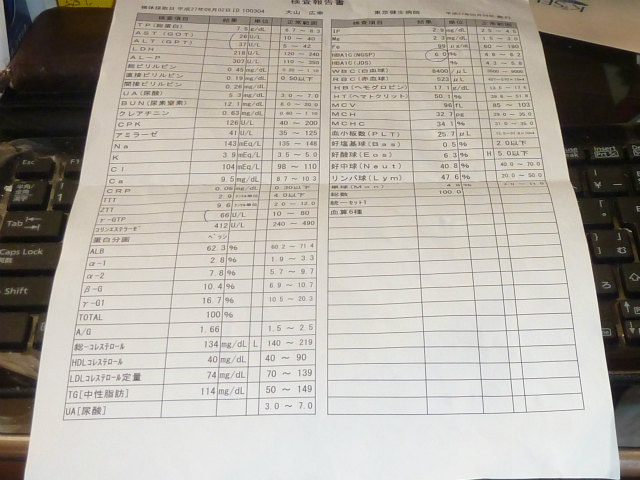 検査報告書
検体採取日 平成27年09月02日 ID 100304 大山 広幸 東京健生病院
検査項目 結果 単位 正常範囲
TP(総蛋白) 7.5 g/dL 6.7 ~ 8.3
AST (GOT) 26 U/L 10 ~ 40
ALT (GPT) 37 U/L 5 ~ 42
LDH 218 U/L 120 ~ 240
AL-P 307 U/L 110 ~ 350
総ビリルビン 0.45 mg/dL
直接ビリルビン 0.19 mg/dL 0.50以下
間接ビリルビン 0.26 mg/dL
UA(尿酸) 5.3 mg/dL 3.0 ~ 7.0
BUN(尿素窒素) 12.1 mg/dL 6.0 ~ 20.0
クレアチニン 0.63 mg/dL 0.60 ~ 1.10
CPK 126 U/L 40 ~ 200
アミラーゼ 41 U/L 35 ~ 125
Na 143 mEq/L 135 ~ 146
K 3.9 mEq/L 3.5 ~ 5.0
Cl 104 mEq/L 98 ~ 110
Ca 9.5 mg/dL 8.7 ~ 10.3
CRP 0.06 mg/dL 0.30以下
TTT 2.9 4.0以下
ZTT 9.6 2.0 ~ 12.0
γ-GTP 66 U/L 10 ~ 80
コリンエステラーゼ 412 U/L 240 ~ 490
蛋白分画
ALB 62.3 % 60.2 ~ 71.4
α-1 2.8 % 1.9 ~ 3.3
α-2 7.8 % 5.7 ~ 9.7
β-G 10.4 % 6.9 ~ 10.7
γ-G1 16.7 % 10.5 ~ 20.3
TOTAL 100 %
A/G 1.66 1.5 ~ 2.5
総-コレステロール 134 mg/dL L 140 ~ 219
HDLコレステロール 40 mg/dL 40 ~ 90
LDLコレステロール定量 74 mg/dL 70 ~ 139
TG[中性脂肪] 114 mg/dL 50 ~ 149
UA[尿酸] 3.0 ~ 7.0
検査項目 結果 単位 正常範囲
IP 2.9 mg/dL 2.5 ~ 4.5
Mg 2.3 mg/dL 1.5 ~ 3.0
Fe 99 μg/dL 60 ~ 180
HBA1C(NGSP) 6.0 % 4.6 ~ 6.2
HBA1C(JDS) % 4.3 ~ 5.8
WBC(白血球) 8400 /μL 3500 ~ 9000
RBC(赤血球) 523 /μL
HB(ヘモグロビン) 17.1 g/dL
HT(ヘマトクリット) 50.1 %
MCV 96 fL 85 ~ 103
MCH 32.7 pg
MCHC 34.1 %
血小板数(PLT) 25.7 μL
好塩基球(Bas) 0.5 % 2.0以下
好酸球(Eos) 6.3 % H 5.0以下
好中球(Neut) 40.8 % 40.0 ~ 70.0
リンパ球(Lym) 47.6 % 20.0 ~ 50.0
単球(Mon) 4.8 %
総数 100.0
統一セット1
血算6種
Tab
Caps Lock
Shift